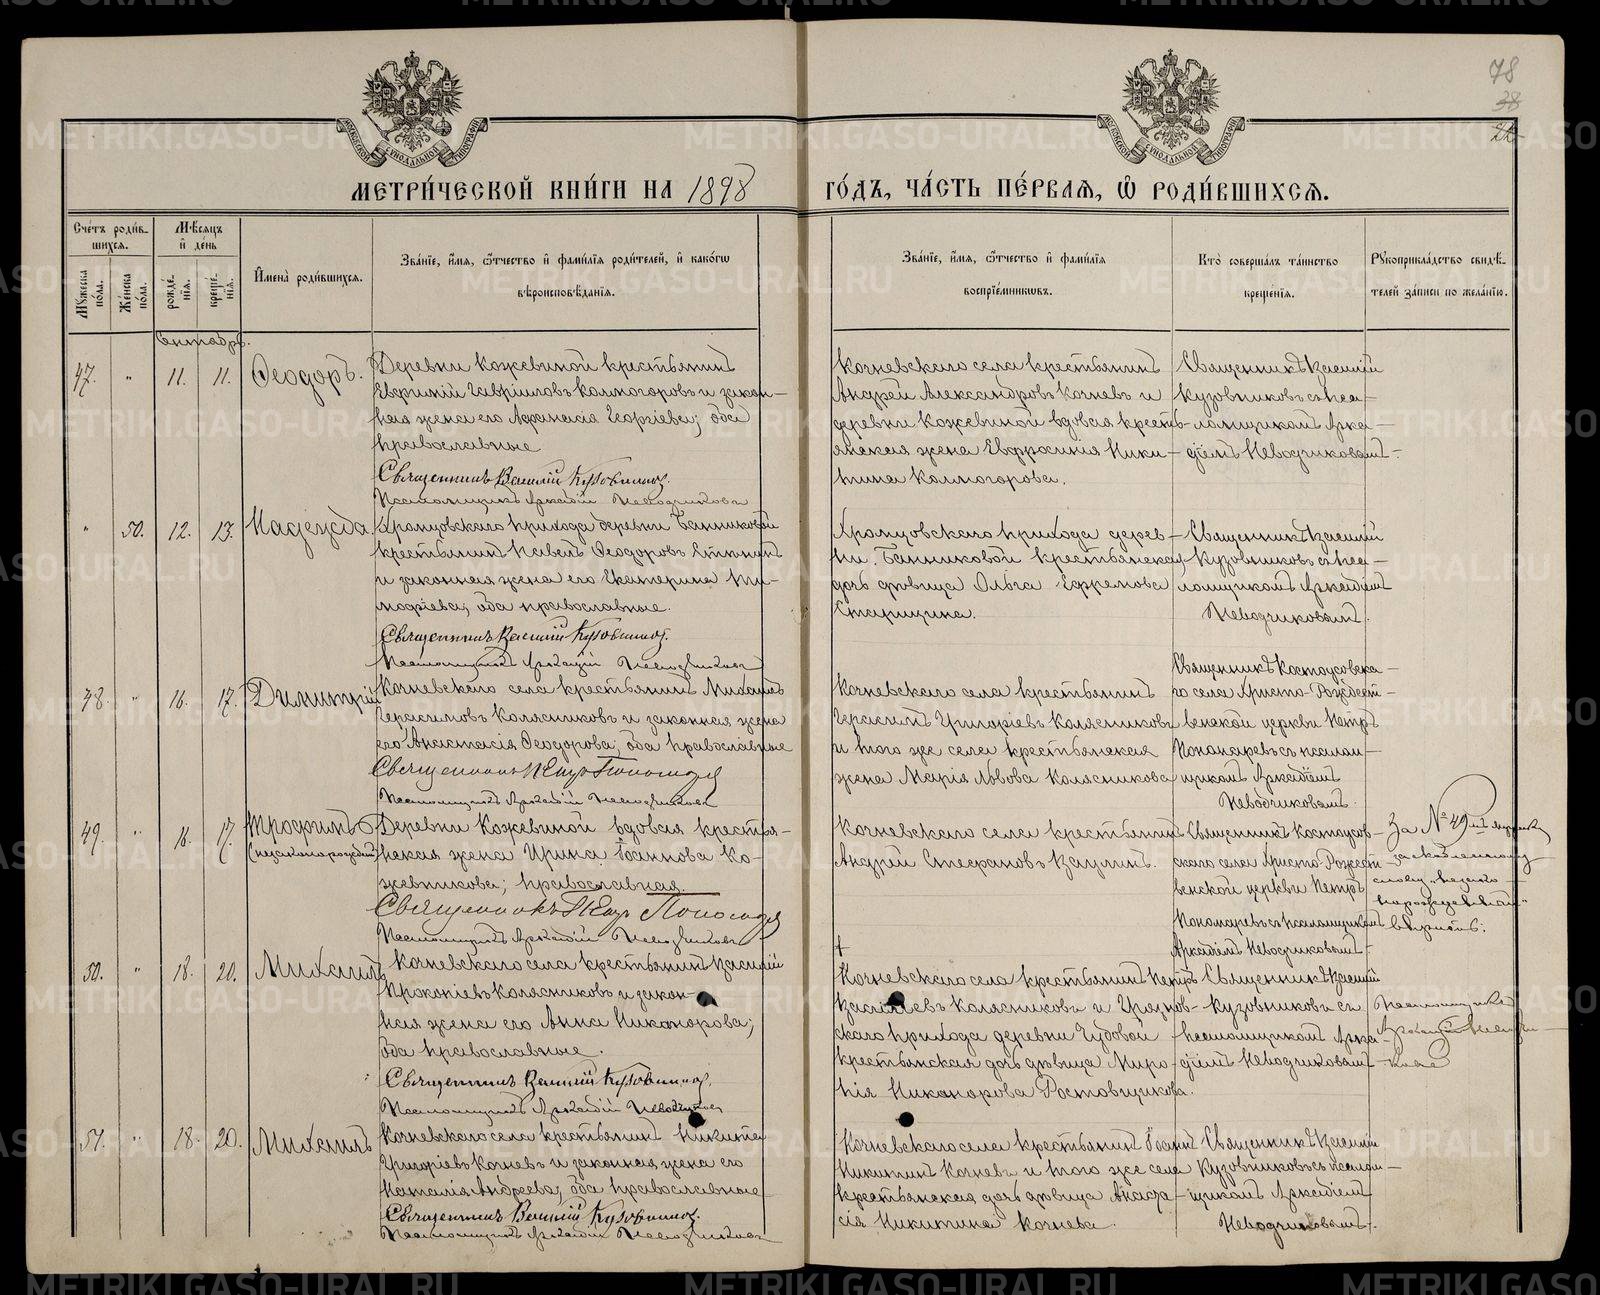 78
38
МЕТРИ́ЧЕСКОЙ КНИ́ГИ НА 1898
ГО́ДЪ, ЧА́СТЬ ПЕ́РВАѦ, Ѡ РОДИ́ВШИХСѦ.
Сче́тъ роди́в-
шихсѧ.
Мꙋжеска по́ла.
Же́нска по́ла.
Мѣ́сѧцъ
и҆ де́нь
рожде́нїѧ.
креще́нїѧ.
И҆мена̀ роди́вшихсѧ.
Зва́нїе, и҆́мѧ, ѻ҆́тчество и҆ фами́лїѧ роди́телей, и҆ како́гѡ
вѣроисповѣ́данїѧ.
Зва́нїе, и҆́мѧ, ѻ҆́тчество и҆ фами́лїѧ
воспрїе́мникѡвъ.
Кто̀ соверша́лъ та́инство
креще́нїѧ.
Рꙋкоприкла́дство свидѣ́-
телей за́писи по жела́нїю.
Сентябрь.
47. " 11. 11. Ѳеодоръ.
Деревни Кожевиной крестьянинъ
Евфимій Гавріиловъ Колмогоровъ и закон-
ная жена его Аѳанасія Георгіева; оба
православные
Священникъ Василій Кузовниковъ.
Псаломщикъ Аркадій Неводчиковъ
Кочневскаго села крестьянинъ
Андрей Александровъ Кочневъ и
деревни Кожевиной вдовая кресть-
янская жена Евфросинія Ники-
тина Колмогорова.
Священникъ Василій
Кузовниковъ съ пса-
ломщикомъ Арка-
діемъ Неводчиковымъ.
" 50. 12. 13. Надежда
Храмцовскаго прихода деревни Банниковой
крестьянинъ Павелъ Ѳеодоровъ
и законная жена его Екатерина Ти-
моѳіева, оба православные.
Священникъ Василій Кузовниковъ.
Псаломщикъ Аркадій Неводчиковъ
Храмцовскаго прихода дерев-
ни Банниковой крестьянская
дочь дѣвица Ольга Ефремова
Старицина.
Священникъ Василій
Кузовниковъ съ пса-
ломщикомъ Аркадіемъ
Неводчиковымъ.
48. " 16. 17. Димитрій
Кочневскаго села крестьянинъ Михаилъ
Герасимовъ Колясниковъ и законная жена
его Анастасія Ѳеодорова, оба православные
Священникъ Петръ Пономаревъ
Псаломщикъ Аркадій Неводчиковъ
Кочневскаго села крестьянинъ
Герасимъ Григоріевъ Колясниковъ
и того же села крестьянская
жена Марія Львова Колясникова
Священникъ Костоусовска-
го села Христо-Рождест-
венской церкви Петръ
Пономаревъ съ псалом-
щикомъ Аркадіемъ
Неводчиковымъ.
49. " 16. 17. Трофимъ
(незаконнорожден.)
Деревни Кожевиной вдовая крестья-
нская жена Ирина Іоаннова Ко-
жевникова; православная.
Священникъ Петръ Пономаревъ
Псаломщикъ Аркадій Неводчиковъ
Кочневскаго села крестьянинъ
Андрей Стефановъ Ваулинъ.
Священникъ Костоусов-
скаго села Христо-Рождест-
венской церкви Петръ
Пономаревъ съ псаломщикомъ
Аркадіемъ Неводчиковымъ.
За № 49
слову „незако-
норожденный"
вѣрить:
Псаломщикъ
Аркадій Невод-
чиковъ
50. " 18. 20. Михаилъ
Кочневскаго села крестьянинъ Василій
Прокопіевъ Колясниковъ и закон-
ная жена его Анна Никанорова;
оба православные.
Священникъ Василій Кузовниковъ.
Псаломщикъ Аркадій Неводчиковъ
Кочневскаго села крестьянинъ Петръ
Васильевъ Колясниковъ и Грязнов-
скаго прихода деревни Чудовой
крестьянская дочь дѣвица Миро-
нія Никанорова Ростовщикова.
Священникъ Василій
Кузовниковъ съ
псаломщикомъ Арка-
діемъ Неводчиковымъ
51. " 18. 20. Михаилъ
Кочневскаго села крестьянинъ Никита
Григоріевъ Кочневъ и законная жена его
Наталія Андреева, оба православные
Священникъ Василій Кузовниковъ.
Псаломщикъ Аркадій Неводчиковъ
Кочневскаго села крестьянинъ Іоаннъ
Никитинъ Кочневъ и того же села
крестьянская дочь дѣвица Анаста-
сія Никитина Кочнева.
Священникъ Василій
Кузовниковъ съ псалом-
щикомъ Аркадіемъ
Неводчиковымъ.
METRIKI.GASO-URAL.RU